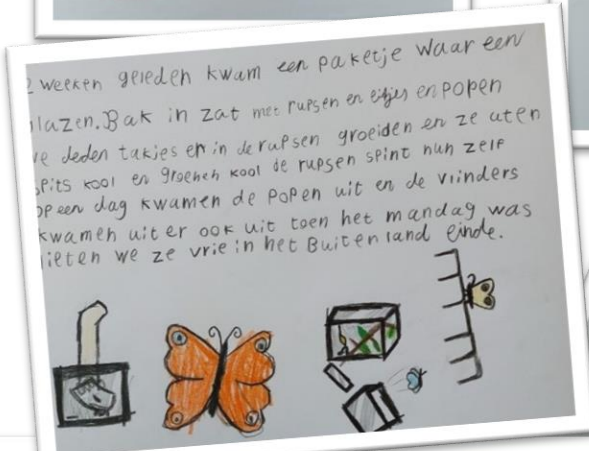 2 weeken geleden kwam een paketje waar een
glazen. Bak in zat met rupsen en eitjes en popen
we deden takjes er in de rupsen groeiden en ze aten
spits kool en groenen kool de rupsen spint nun zelf
op een dag kwamen de popen uit en de vlinders
kwamen uit er ook uit toen het mandag was
lieten we ze vrie in het Buiten land einde.